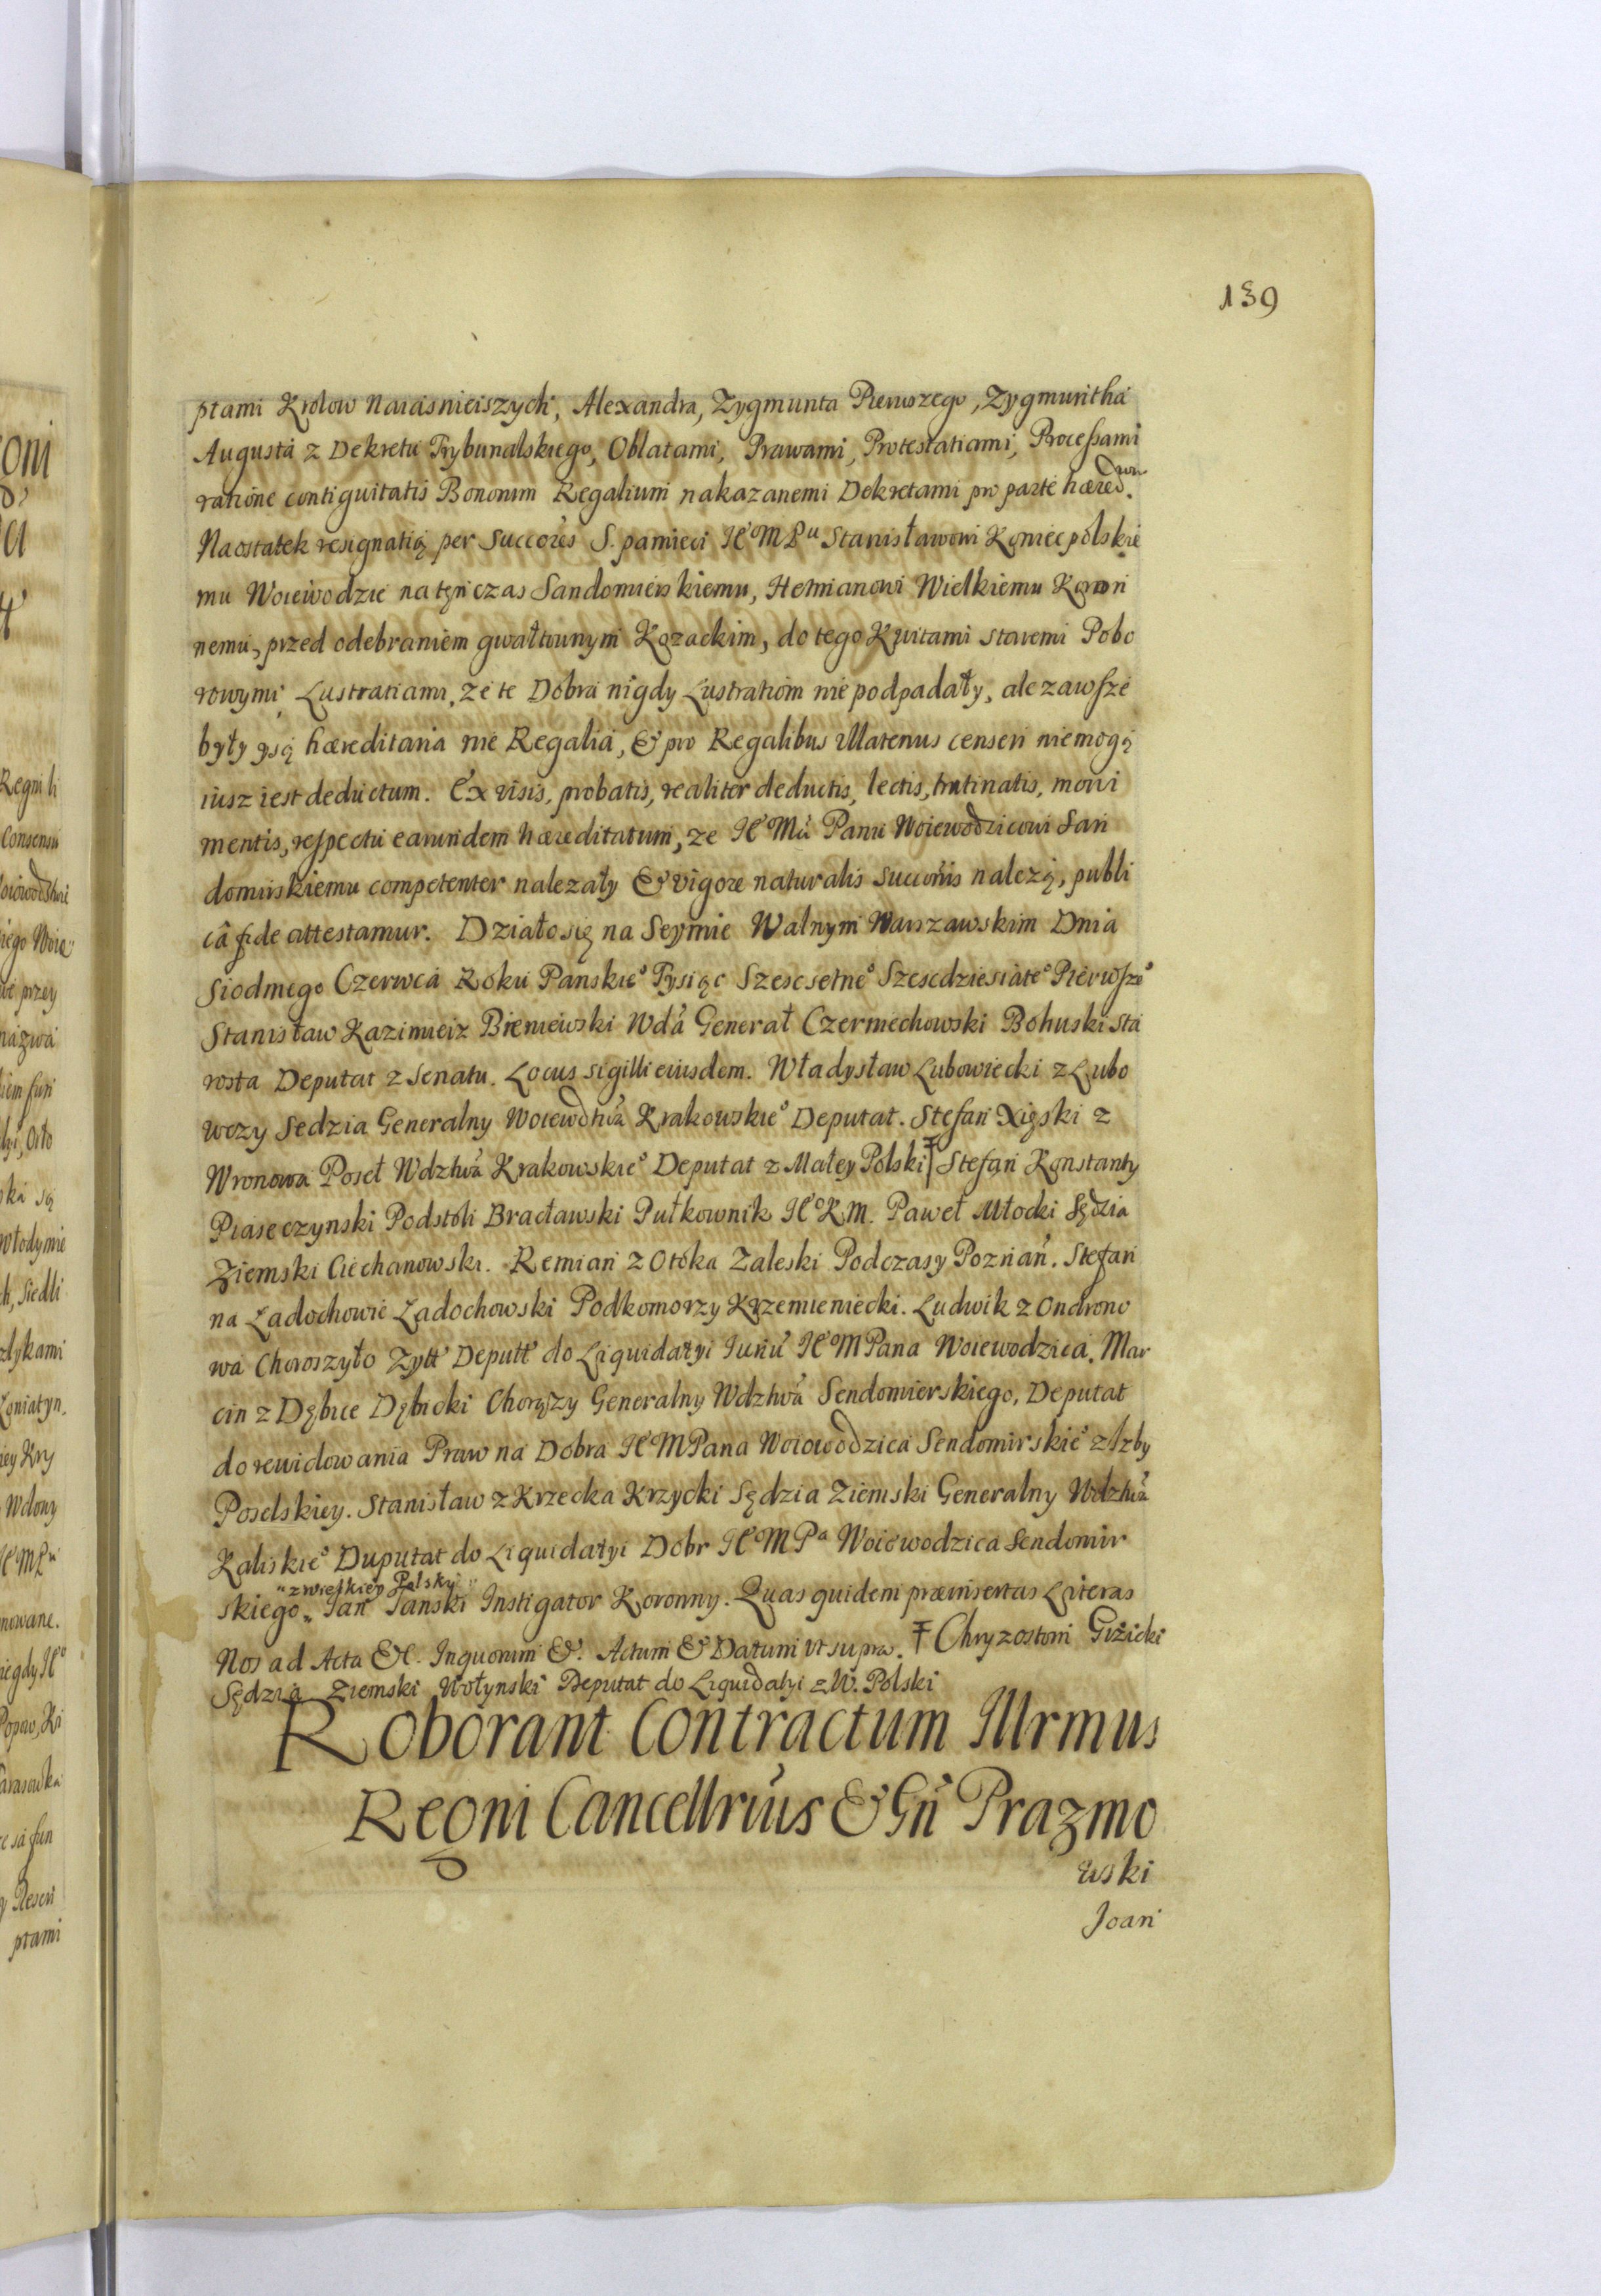 139
ptami Krolow Naiasnieiszych, Alexandra, Zygmunta Pierwszego, Zygmuntha
Augusta z Dekretu Trybunalskiego, Oblatami, Prawami, Protestatiami, Processami
ratione contiguitatis Bonorum Regalium nakazanemi Dekretami pro parte hæredum.
Naostatek resignatią per Succores S. pamieci JeoMPu Stanisławowi Koniecpolskie
mu Woiewodzie natęn czas Sandomierskiemu, Hetmanowi Wielkiemu Koron
nemu, przed odebraniem gwałtownym Kozackim, do tego Kwitami staremi Pobo
rowymi Lustratiami, ze te Dobra nigdy Lustratiom nie podpadały, ale zawsze
były ysą hæreditaria nie Regalia, & pro Regalibus illatenus censeri niemogą
iusz iest deductum. Ex visis, probatis, realiter deductis, lectis, trutinatis, moni
mentis, respectu earundem hæreditatum, ze JeoMu Panu Woiewodzicowi San
domirskiemu competenter nalezały & vigore naturalis succonis nalezą, publi
câ fide attestamur. Działo się na Seymie Walnym Warszawskim Dnia
Siodmego Czerwca Roku Panskieo Tysiąc Szescsetneo Szescdziesiąteo Pierwszeo
Stanisław Kazimierz Bieniewski Wda Generał Czerniechowski Bohuski Sta
rosta Deputat z Senatu. Locus sigilli eiusdem. Władysław Lubowiecki z Lubo
wozy Sedzia Generalny Woiewodztwa Krakowskieo Deputat. Stefan Xięski z
Wronowa Poseł Wdztwa Krakowskieo Deputat z Małey Polski Ŧ Stefan Konstanty
Piaseczynski Podstoli Bracławski Pułkownik JeoKM. Paweł Młocki Sędzia
Ziemski Ciechanowski. Remian z Otoka Zaleski Podczasy Poznan. Stefan
na Ladochowie Ladochowski Podkomorzy Krzemieniecki. Ludwik z Ondrono
wa Choroszyło Zytt Deputt do Liquidatyi Iuriu JeoMPana Woiewodzica. Mar
cin z Dębice Dębicki Chorązy Generalny Wdztwa Sendomierskiego, Deputat
do rewidowania Praw na Dobra JeoMPana Woiowodzica Sendomirskieo z Izby
Poselskiey. Stanisław z Krzecka Krzycki Sędzia Ziemski Generalny Wdztwa
Kaliskieo Duputat do Liquidatyi Dobr JeoMPa Woiewodzica Sendomir
"z wielkiey Polsky"
skiego" Ian Tanski Instigator Koronny. Quas quidem præinsertas Literas
Nos ad Acta &c. Inquorum &. Actum & Datum vt supra. Ŧ Chryzostom Giżicki
Sędzia Ziemski Wołynski Deputat do Liquidatyi z W. Polski
Roborant Contractum Illrmus
Regni Cancellrius & Gn Prazmo
wski
Joan
oni
Regni li
Consensu
iego Woie"
we przey
nazwa
ską są
Włodymie
ch, Siedli
Koniatyn.
iey Kry
Wdowy
nowane.
Popow, Ki
arasowka
y Rescri
ptami